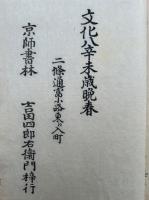 文化八辛未歳晩春
二條通富小路東ヘ入町
京師書林
吉田四郎右衛門梓行